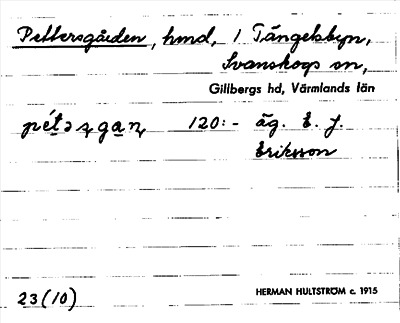 Pettersgården, hmd, 1 Tängelsbyn,
Svanskogs sn,
Gillbergs hd, Värmlands län
120:- äg. E. J.
Eriksson
23(10)
HERMAN HULTSTRÖM c. 1915